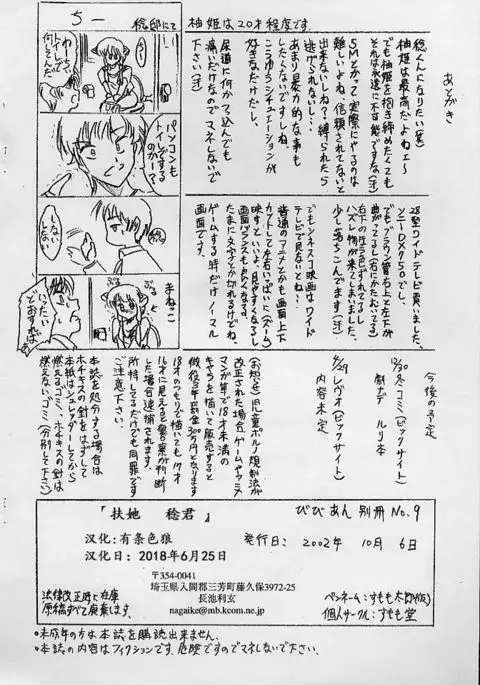 あとがき
稔くんになりたい(笑)
柚姫は最高だよねェ〜
でも柚姫を抱き締めたくても
それは永遠に不可能ですな(汗)
SMとかって実際にやるのは
難しいよね。信頼されてないと
出来ないしね?縛られたら
逃げられないし…。
あまり暴力的な事も
したくないですしね。
こうゆうシチュエーションが
好きなだけだし。
尿道に何かつっ込んでも
痛いだけなのでマネしないで
下さい(汗)
柚姫は20才程度です。
5
稔邸にて
わ〜ちっ
何してんだ
パソコンも
トイレでする
のかー?
ぷる
ぷる
まねっこ
28型ワイドテレビ買いました。
ソニーDX750でし。
でもブラウン管右上と左下が
曲がってるし(右にかたむいてる)
ハズレ物が来てしまいました。
少し落ちこんでます(汗)
でもシネスコ映画はワイド
テレビで見ないとね!
普通のアニメとかも画面上下
カットして左右いっぱいに(ズーム)
映すといいよ。見やすくなるし
画面バランスも良くなる。
たまに文字とかが切れるけどね。
ゲームする時だけノーマル
画面です。
今後の予定
12/30冬コミ(ビックサイト)
劇ナデ ルリ本
12/29レヴォ(ビックサイト)
内容未定
(お知らせ)児童ポルノ規制法が
改正された場合、ゲームやアニメ
マンガ等で18才未満の
キャラを描いて販売すると
懲役3年罰金300万円となります
18才のつもりで描いても17才
16才に見えると警察が判断
した場合逮捕されます。
所持してるだけでも同罪です
ご注意下さい。
本誌を処分する場合は
ホチキスの針をはずして
本紙はシュレッダーしてから
燃えるゴミ、ホチキスの針は
燃えないゴミ(分別して下さい)
『扶她 稔君』
汉化:有条色狼
汉化日:2018年6月25日
〒354-0041
埼玉県入間郡三芳町藤久保3972-25
長池利玄
nagaike@mb.kcom.ne.jp
法律改正時に在庫
原稿すべて廃棄します。
びびあん 別冊 No.9
発行日: 2002年 10月 6日
ペンネーム:すもも太郎(仮)
個人サークル:すもも堂
・未成年の方は本誌を購読出来ません。
・本誌の内容はフィクションです。危険ですのでマネしないで下さい。